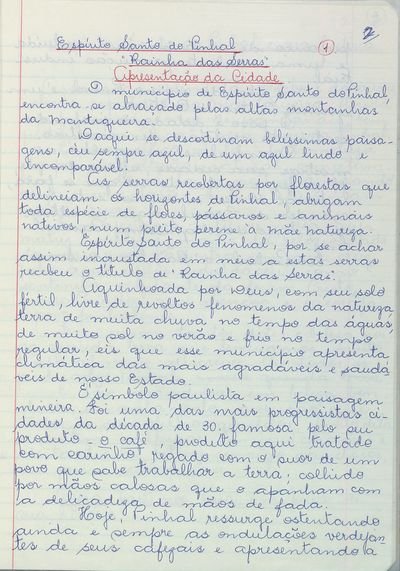 2
1
Espírito Santo do Pinhal
"Rainha das Serras"
Apresentação da Cidade
O município de Espírito Santo do Pinhal,
encontra-se abraçado pelas altas montanhas
da Mantiqueira.
Daqui se descortinam belíssimas paisa-
gens, céu sempre azul, de um azul lindo e
incomparável.
As serras recobertas por florestas que
delineiam os horizontes de Pinhal, abrigam
toda espécie de flores, pássaros e animais
nativos, num preito perene à mãe natureza.
Espírito Santo do Pinhal, por se achar
assim incrustada em meio a estas serras
recebeu o título de "Rainha das Serras".
Aquinhoada por Deus, com seu solo
fértil, livre de revoltos fenomenos da natureza,
terra de muita chuva no tempo das águas,
de muito sol no verão e frio no tempo
regular, eis que esse município apresenta
climática das mais agradáveis e saudá
veis de nosso Estado.
É símbolo paulista em paisagem
mineira. Foi uma das mais progressistas ci-
dades da década de 30. famosa pelo seu
produto - o café, produto aqui tratado
com carinho, regado com o suor de um
povo que sabe trabalhar a terra, colhido
por mãos calosas que o apanham com
a delicadeza de mãos de fada.
Hoje, Pinhal ressurge ostentando
ainda e sempre as ondulações verdejan-
tes de seus cafezais e apresentando a